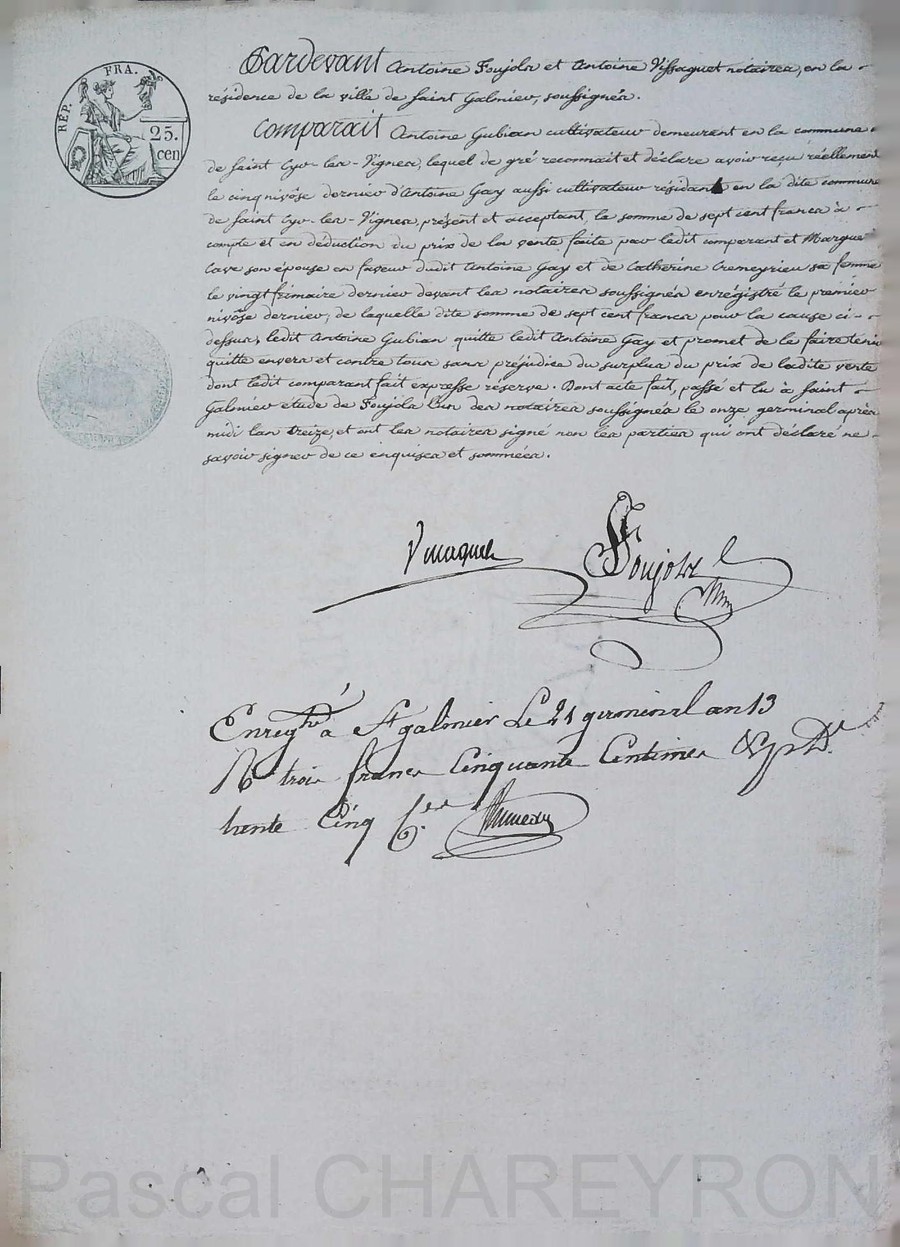 RÉP. FRA.
25.
cen
Pardevant Antoine Foujols et Antoine Vissaguet notaires, en la
résidence de la ville de Saint Galmier, soussignés.
Comparait Antoine Gubian cultivateur demeurant en la commune
de Saint Cyr-les-Vignes, lequel de gré reconnait et déclare avoir reçu réellement
le cinq nivôse dernier d'Antoine Gay aussi cultivateur résidant en la dite commune
de Saint Cyr-les-Vignes, présent et acceptant, la somme de sept cent francs à
compte et en déduction du prix de la vente faite par ledit comparant et Margue
Cave son épouse en faveur dudit Antoine Gay et de Catherine Cremeyrieu sa femme
le vingt frimaire dernier devant les notaires soussignés enrégistré le premier
nivôse dernier, de laquelle dite somme de sept cent francs pour la cause ci-
dessus, ledit Antoine Gubian quitte ledit Antoine Gay et promet de le faire tenir
quitte envers et contre tous sans préjudice du surplus du prix de ladite vente
dont ledit comparant fait expresse réserve. Dont acte fait, passé et lu à Saint
Galmier étude de Foujols l'un des notaires soussignés le onze germinal après
midi l'an treize, et ont les notaires signé non les parties qui ont déclaré ne
savoir signer de ce enquises et sommées.
Foujols
Enregtré à St galmier Le 21 germinal an 13
R trois francs Cinquante Centimes
trente Cinq Ces
Pascal CHAREYRON